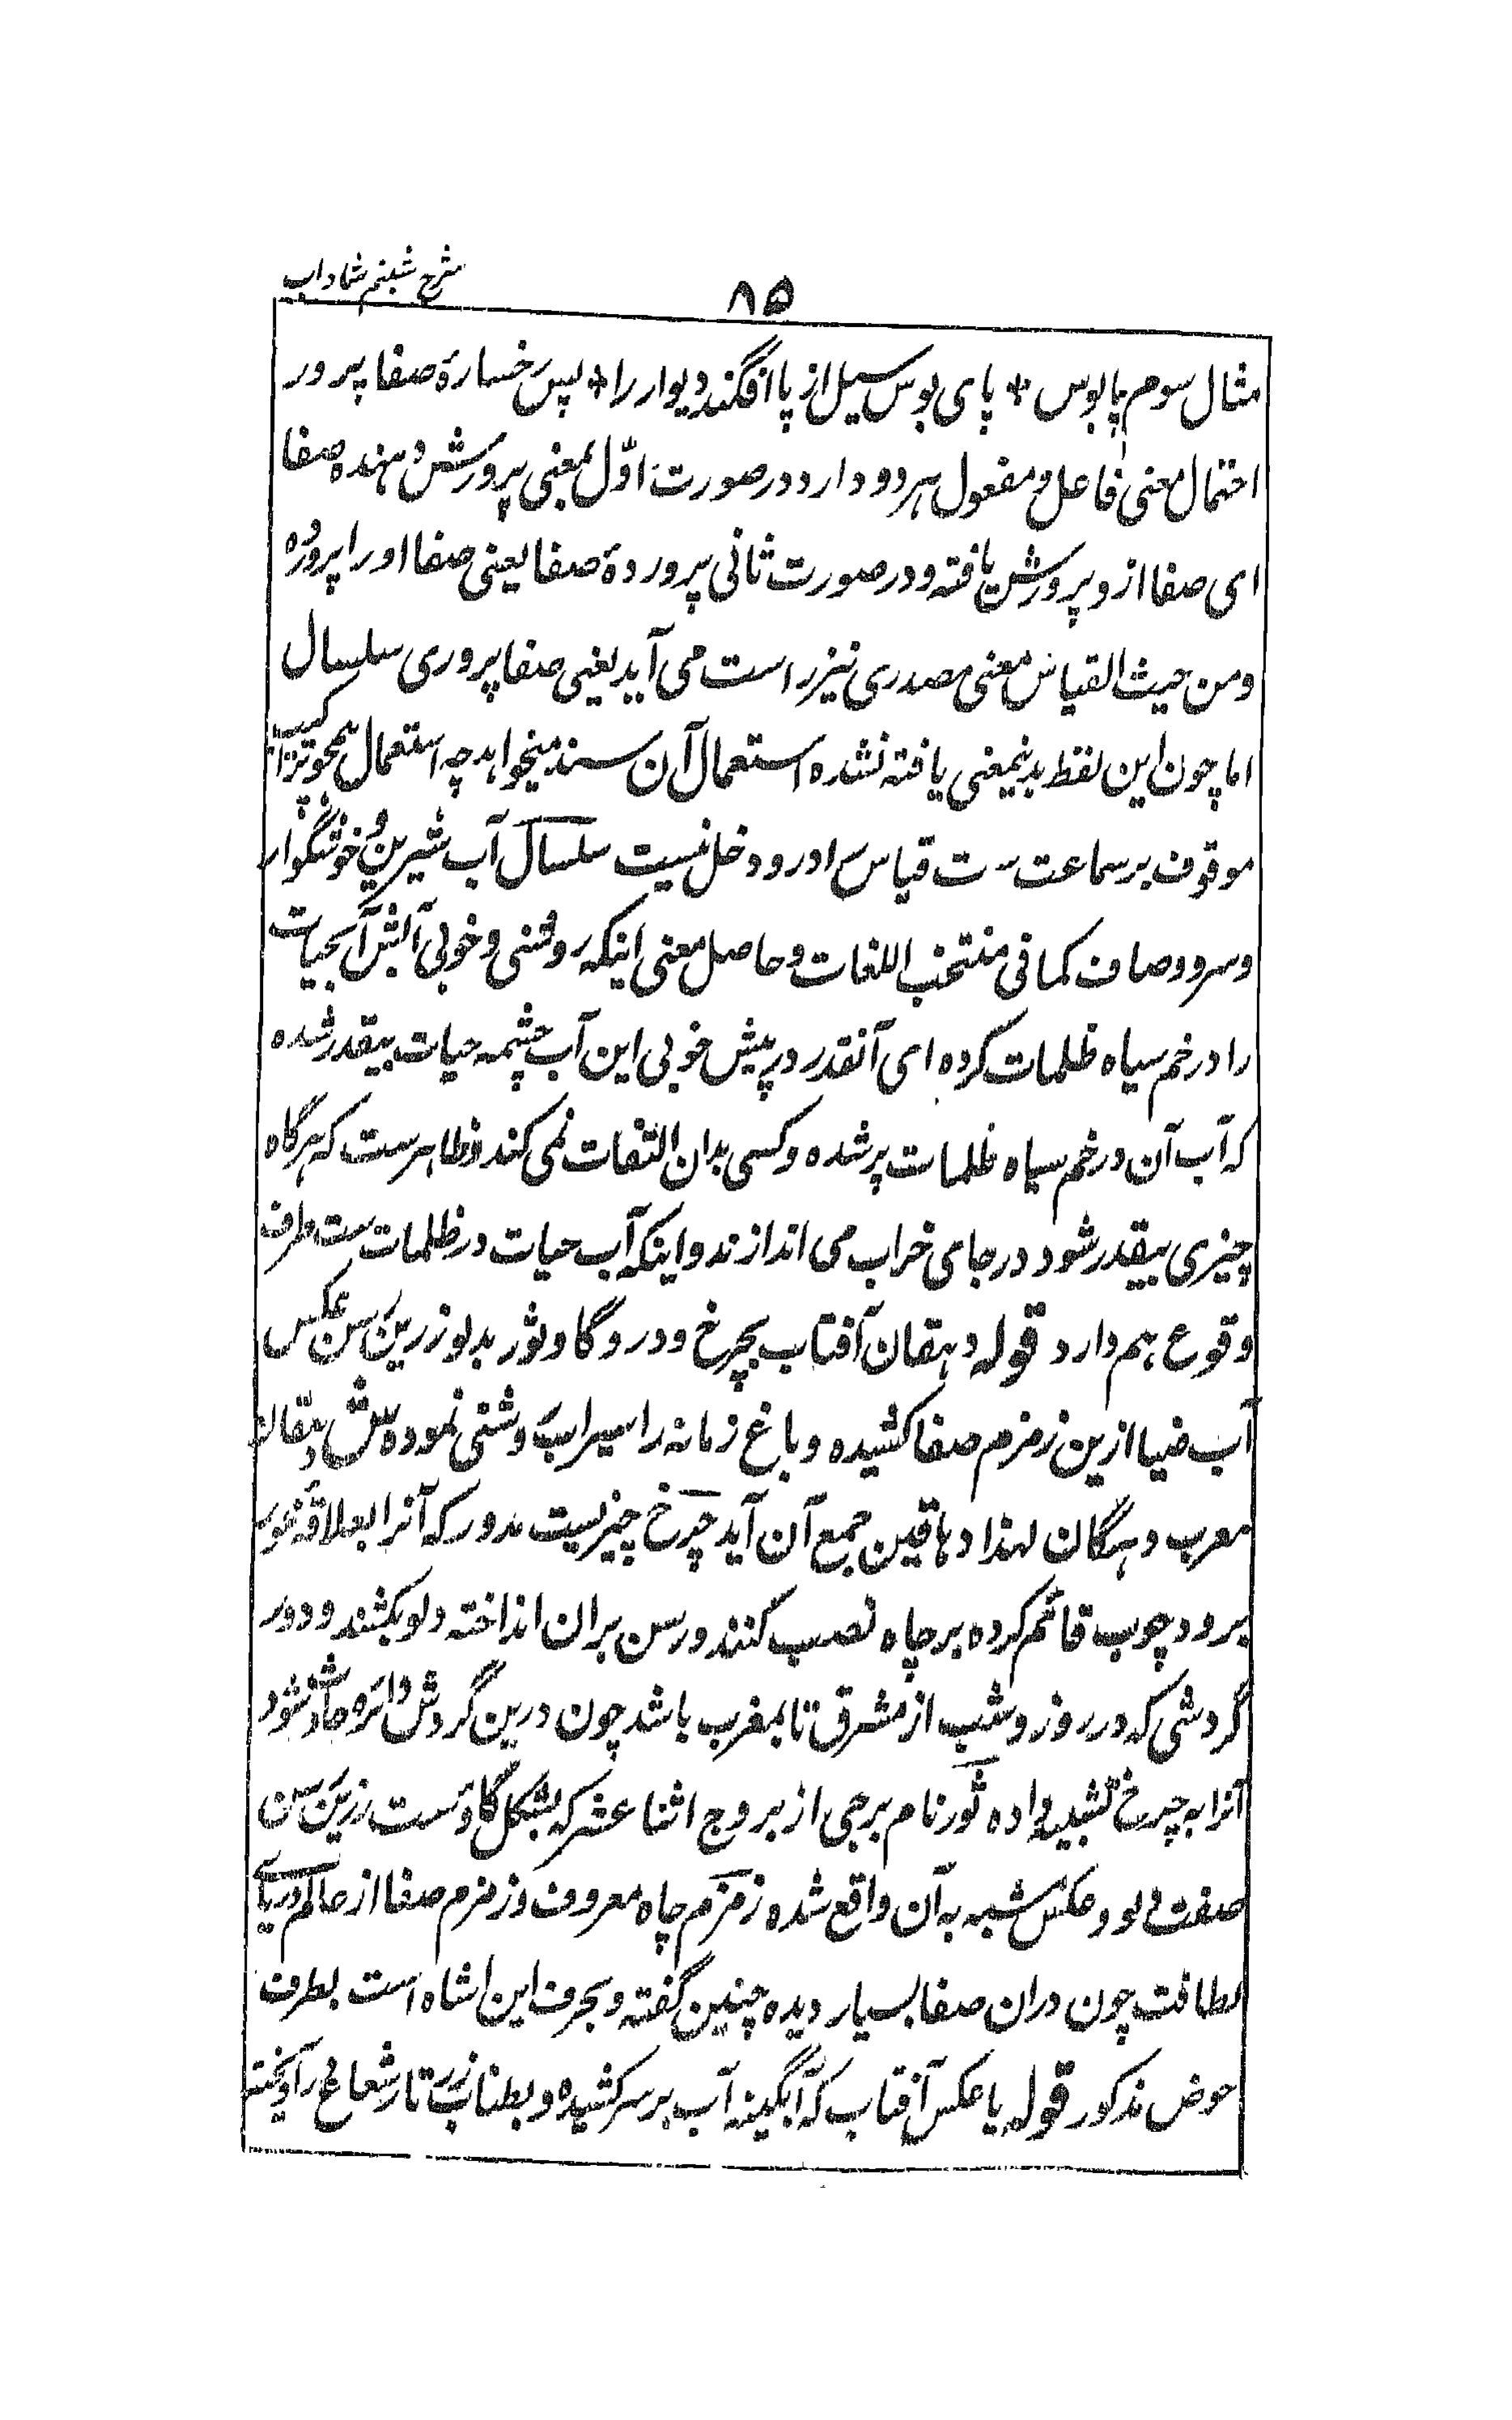 شرح شبنم شاداب
۸۵
مثال سوم پابوس * پای بوس سیل از پا افگند دیوار را * پس رخسارۀ صفا پرور
احتمال معنی فاعل و مفعول هر دو دارد در صورت اوّل بمعنی پرورش دهنده صفا
ای صفا از و پرورش یافته و در صورت ثانی پروردۀ صفا یعنی صفا او را پروردہ
ومن حیث القیاس معنی مصدری نیز راست می آید یعنی صفا پروری سلسال
اما چون این لفظ بدینمعنی یافته نشده استعمال آن سند میخواهد چه استعمال همچو
موقوف بر سماعت ست قیاس را درو دخل نیست سلسال آب شیرین و خوشگوار
وسرد و صاف کما فی منتخب اللغات و حاصل معنی اینکه روشنی و خوبی آبش آب حیات
را در خم سیاه ظلمات کرده ای آنقدر در پیش خوبی این آب چشمه حیات بیقدر شده
که آب آن در خم سیاه ظلمات پر شده و کسی بدان التفات نمی کند و ظاهر ست که هرگاه
چیزی بیقدر شود در جای خراب می اندازند و اینکه آب حیات در ظلمات ست طرف
وقوع هم دارد قوله دهقان آفتاب بچرخ و در و گاو ثور بدلو زرین رسن عکس
آب ضیا ازین زمزم صفا کشیده و باغ زمانه را سیراب روشنی نموده ش دهقان
معرب دهگان لهذا دهاقین جمع آن آید چرخ چیزیست مدور که آنرا بعلاقۀ محور
بر دو چوب قائم کرده بر چاه نصب کنند و رسن بران انداخته دلو بکشند و دور
گردشی که در روز و شب از مشرق تا بمغرب باشد چون درین گردش دائره حادث شود
آنرا به چرخ تشبیه داده ثور نام برجی از بروج اثنا عشر که بشکل گاوست زرین رسن
صفت دلو و عکس مشبه به آن واقع شده زمزم چاه معروف و زمزم صفا از عالم دریای
لطافت چون دران صفا بسیار دیده چنین گفته و بحرف این اشاه است بطرف
حوض مذکور قوله یا عکس آفتاب که آبگینه آب بر سر کشیده و بطناب زرتار شعاع آویخته